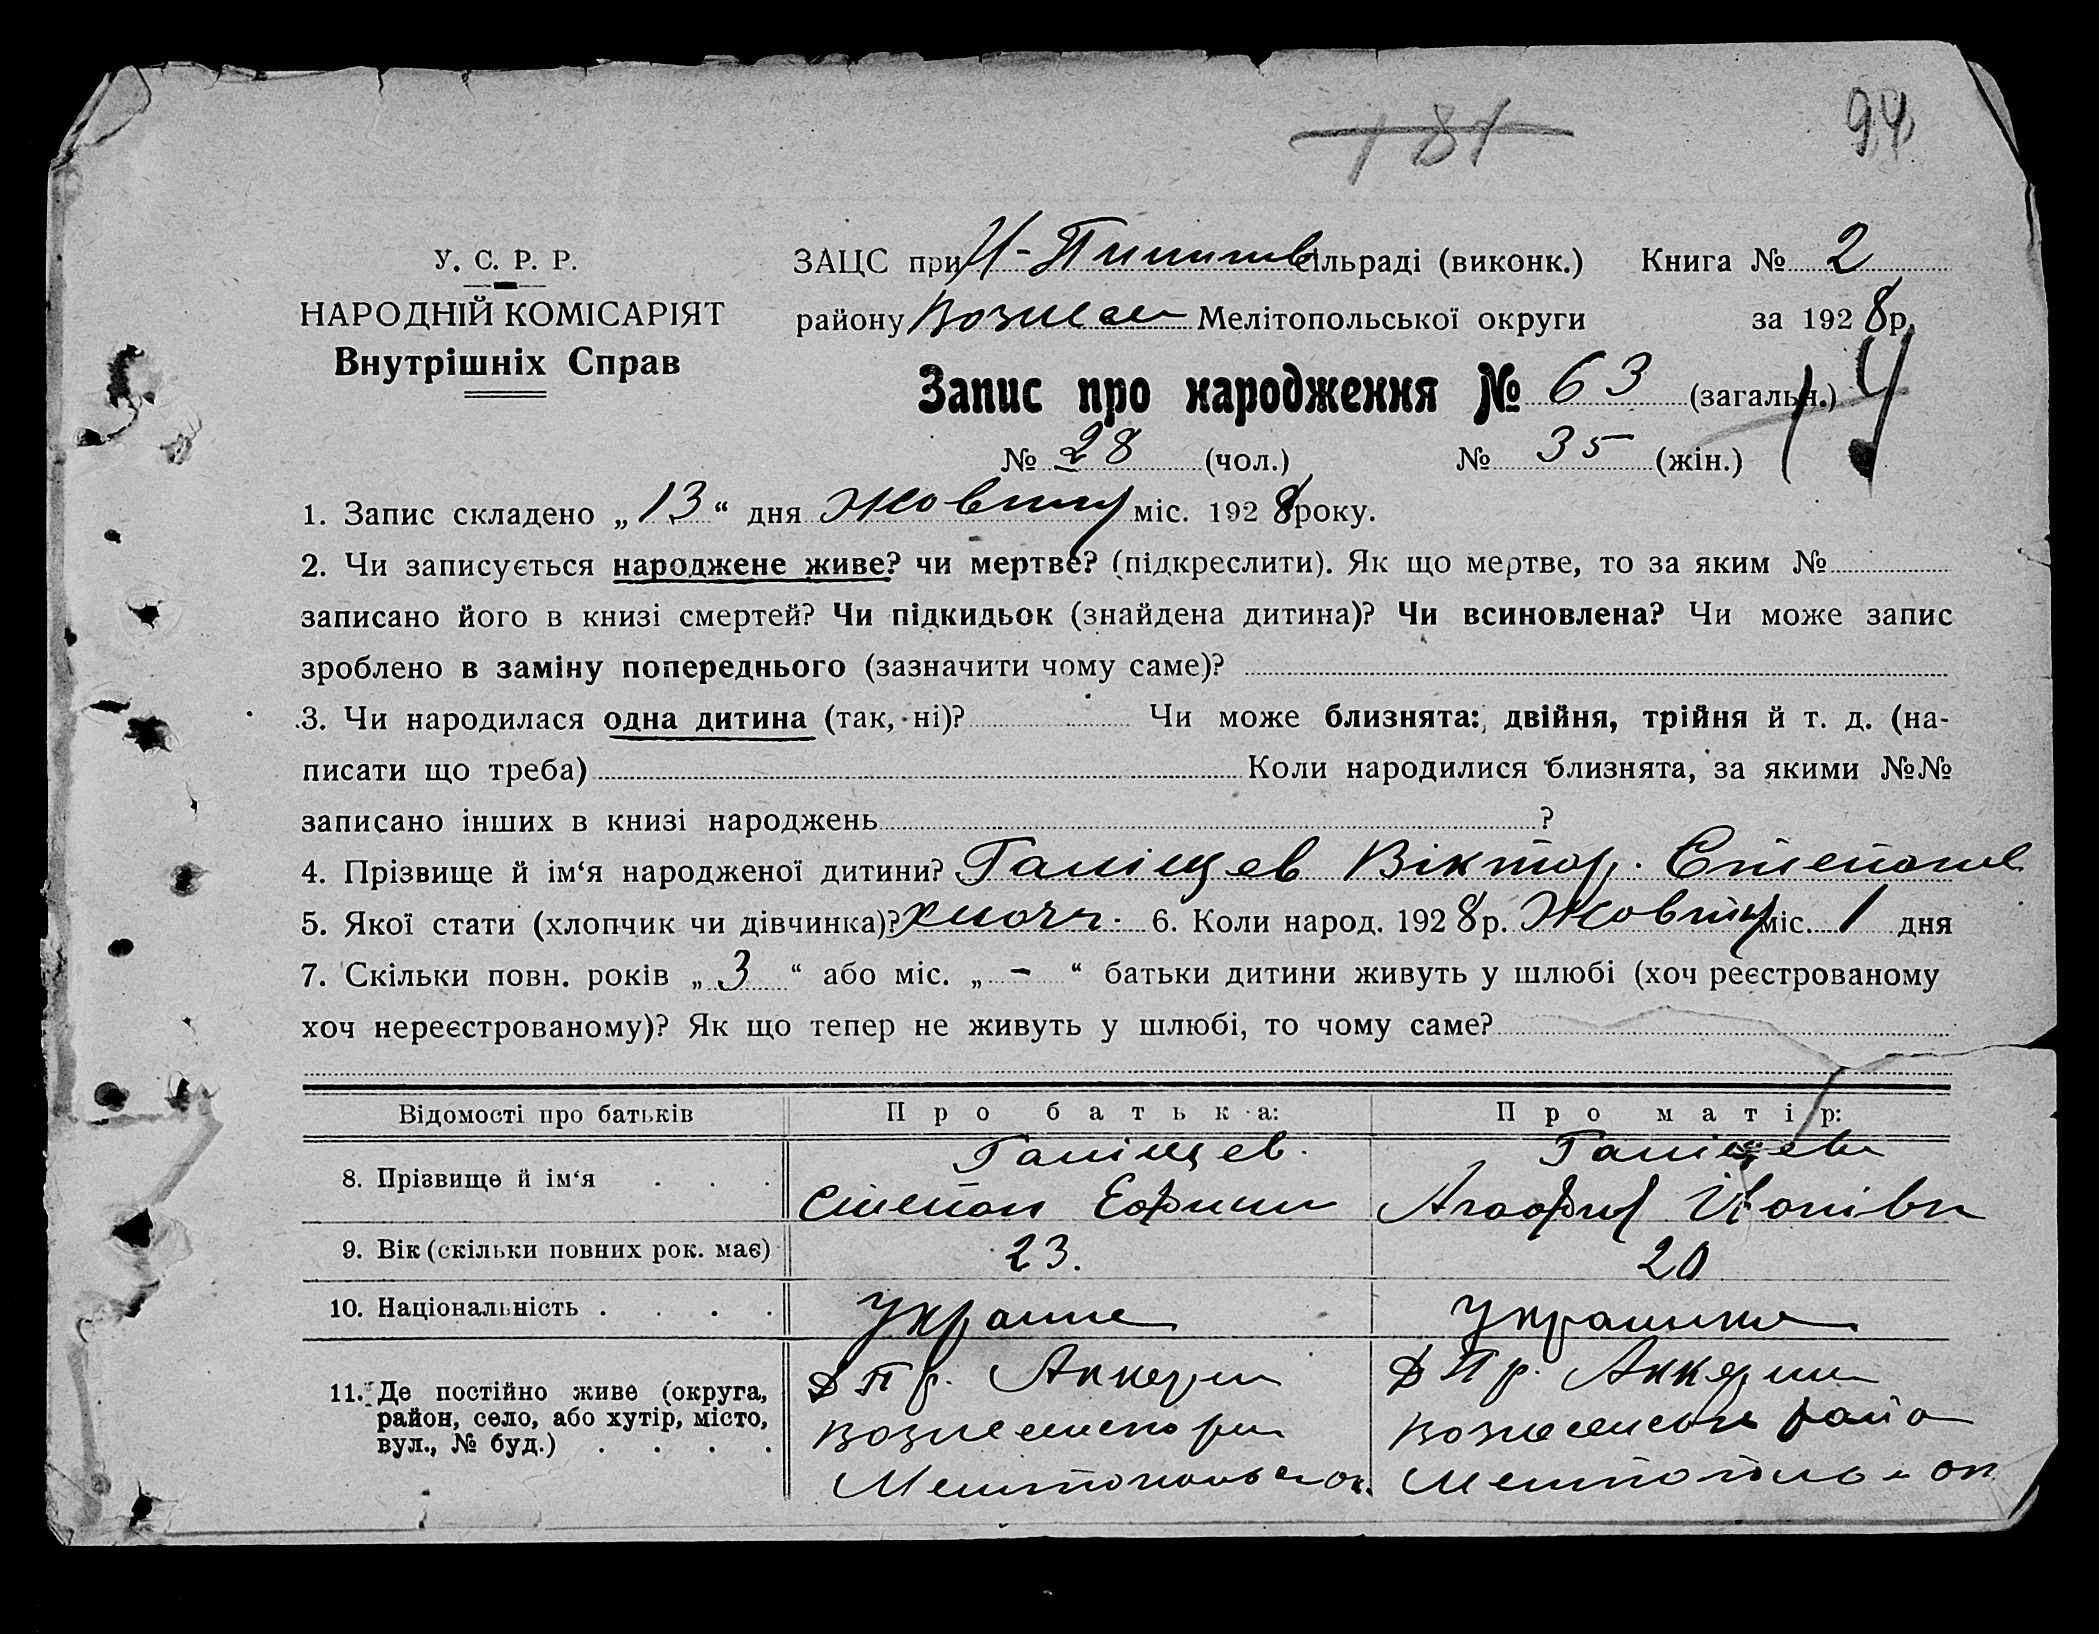 94
181
У. С. Р. Р.
НАРОДНІЙ КОМІСАРІЯТ
Внутрішніх Справ
ЗАЦС при Н- сільраді (виконк.) Книга № 2
району Вознесен Мелітопольської округи за 1928 р.
Запис про народження № 63 (загальн.)
№ 28 (чол.) № 35 (жін.)
1. Запис складено „13“ дня Жовтня міс. 1928 року.
2. Чи записується народжене живе? чи мертве? (підкреслити). Як що мертве, то за яким №
записано його в книзі смертей? Чи підкидьок (знайдена дитина)? Чи всиновлена? Чи може запис
зроблено в заміну попереднього (зазначити чому саме)?
3. Чи народилася одна дитина (так, ні)? Чи може близнята: двійня, трійня й т. д. (на-
писати що треба) Коли народилися близнята, за якими №№
записано інших в книзі народжень ?
4. Прізвище й ім‘я народженої дитини? Галіцев Віктор. Степанов
5. Якої стати (хлопчик чи дівчинка)? хлопч. 6. Коли народ. 1928 р. Жовтня міс. 1 дня
7. Скільки повн. років „3“ або міс. „-“ батьки дитини живуть у шлюбі (хоч реєстрованому
хоч нереєстрованому)? Як що тепер не живуть у шлюбі, то чому саме?
Відомості про батьків Про батька: Про матір:
8. Прізвище й ім‘я . . . Галіцев. Галіцева
Степан Ефим Агафия Иванівна
9. Вік (скільки повних рок. має) 23. 20
10. Національність . . . . Украине Украинка
11. Де постійно живе (округа,
район, село, або хутір, місто,
вул., № буд.) . . . .
Пр. Аккерм Пр. Аккерм
Вознесенско рна Вознесенск райо
Мелитопольск ок. Мелитополь ок